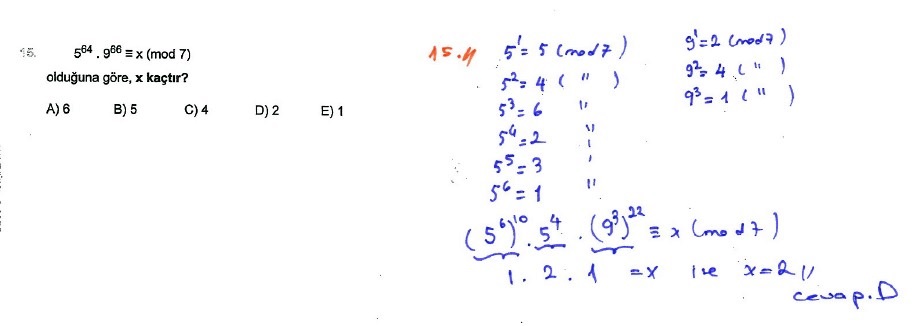 15. 5^64 . 9^66 ≡ x (mod 7)
olduğuna göre, x kaçtır?
A) 6 B) 5 C) 4 D) 2 E) 1
15.
5^1 = 5 (mod 7)
5^2 = 4 ( " )
5^3 = 6 "
5^4 = 2 "
5^5 = 3 "
5^6 = 1 "
9^1 = 2 (mod 7)
9^2 = 4 ( " )
9^3 = 1 ( " )
(5^6)^10 . 5^4 . (9^3)^22 ≡ x (mod 7)
1 . 2 . 1 = x ise x = 2 //
cevap. D